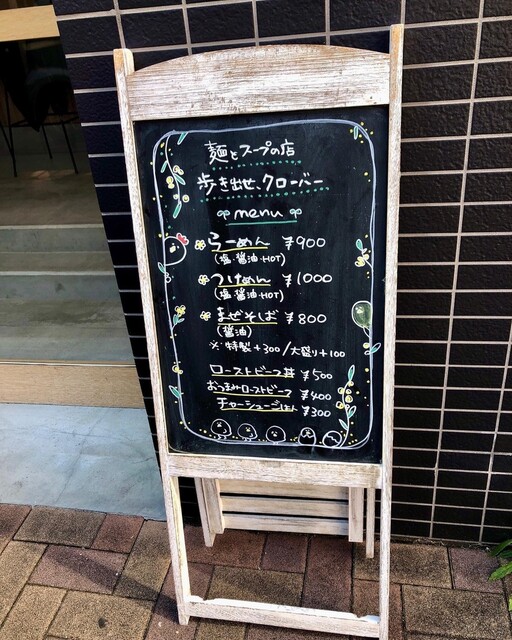 麺とスープの店
歩き出せ、クローバー
menu
らーめん ¥900
(塩・醤油・HOT)
つけめん ¥1000
(塩・醤油・HOT)
まぜそば ¥800
(醤油)
※特製+300/大盛り+100
ローストビーフ丼 ¥500
おつまみローストビーフ ¥400
チャーシューごはん ¥300